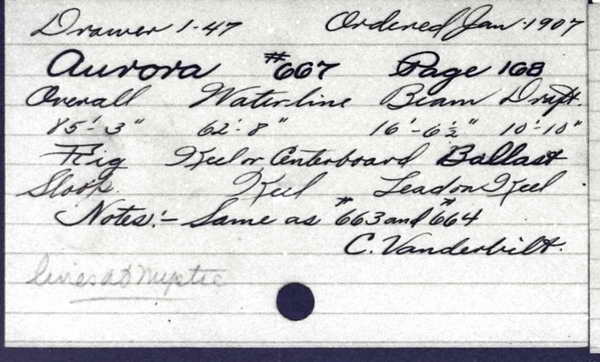 Drawer 1-47 Ordered Jan. 1907
Aurora #667 Page 168
Overall Water-line Beam Draft.
85'-3" 62'-8" 16'-6½" 10'-10"
Rig Keel or Centerboard Ballast
Sloop. Keel Lead on Keel
Notes:- Same as #663 and #664
C. Vanderbilt.
lines at Mystic